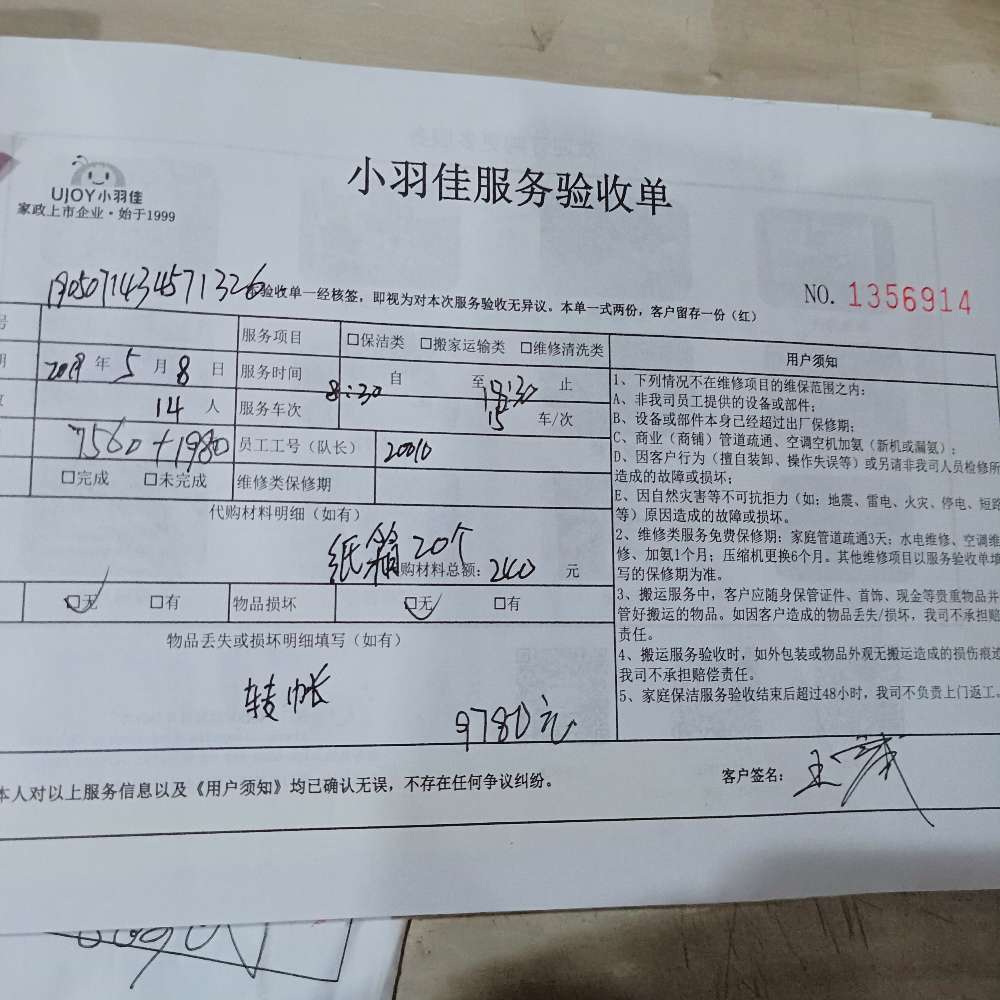 UJOY小羽佳
家政上市企业·始于1999
小羽佳服务验收单
1905071434571326
验收单一经核签，即视为对本次服务验收无异议。本单一式两份，客户留存一份（红）
NO. 1356914
号
服务项目
□保洁类 □搬家运输类 □维修清洗类
期 2019 年 5 月 8 日
服务时间
8:30 自 至 止
14 人
服务车次
15 车/次
7560+1980
员工工号（队长）
20010
□完成 □未完成
维修类保修期
代购材料明细（如有）
纸箱20个
购材料总额： 240 元
□无 □有
物品损坏
□无 □有
物品丢失或损坏明细填写（如有）
转帐
9780元
用户须知
1、下列情况不在维修项目的维保范围之内：
A、非我司员工提供的设备或部件；
B、设备或部件本身已经超过出厂保修期；
C、商业（商铺）管道疏通、空调空机加氨（新机或漏氨）；
D、因客户行为（擅自装卸、操作失误等）或另请非我司人员检修所
造成的故障或损坏；
E、因自然灾害等不可抗拒力（如：地震、雷电、火灾、停电、短路
等）原因造成的故障或损坏。
2、维修类服务免费保修期：家庭管道疏通3天；水电维修、空调维
修、加氨1个月；压缩机更换6个月。其他维修项目以服务验收单填
写的保修期为准。
3、搬运服务中，客户应随身保管证件、首饰、现金等贵重物品并
管好搬运的物品。如因客户造成的物品丢失/损坏，我司不承担赔
责任。
4、搬运服务验收时，如外包装或物品外观无搬运造成的损伤痕迹
我司不承担赔偿责任。
5、家庭保洁服务验收结束后超过48小时，我司不负责上门返工。
本人对以上服务信息以及《用户须知》均已确认无误，不存在任何争议纠纷。
客户签名：